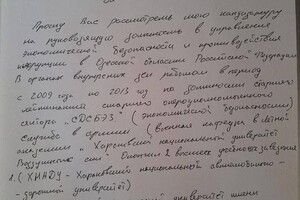 Прошу Вас рассмотреть мою кандидатуру
на руководящую должность в управлении
экономической безопасности и противодействия
коррупции в Одесской области Российской Федерации
В органах внутренних дел работал в период
с 2009 года по 2013 год на должностях старшего
лейтенанта старшего оперуполномоченного
сектора "СДСБЭЗ" (экономической безопасности)
Служба в армии (военная кафедра в летной
академии "Харьковский национальный университет
Воздушных сил" Окончил 2 высших учебных заведения
1. (ХНАДУ - Харьковский национальный автомобильно -
- дорожный университет)
университет имени